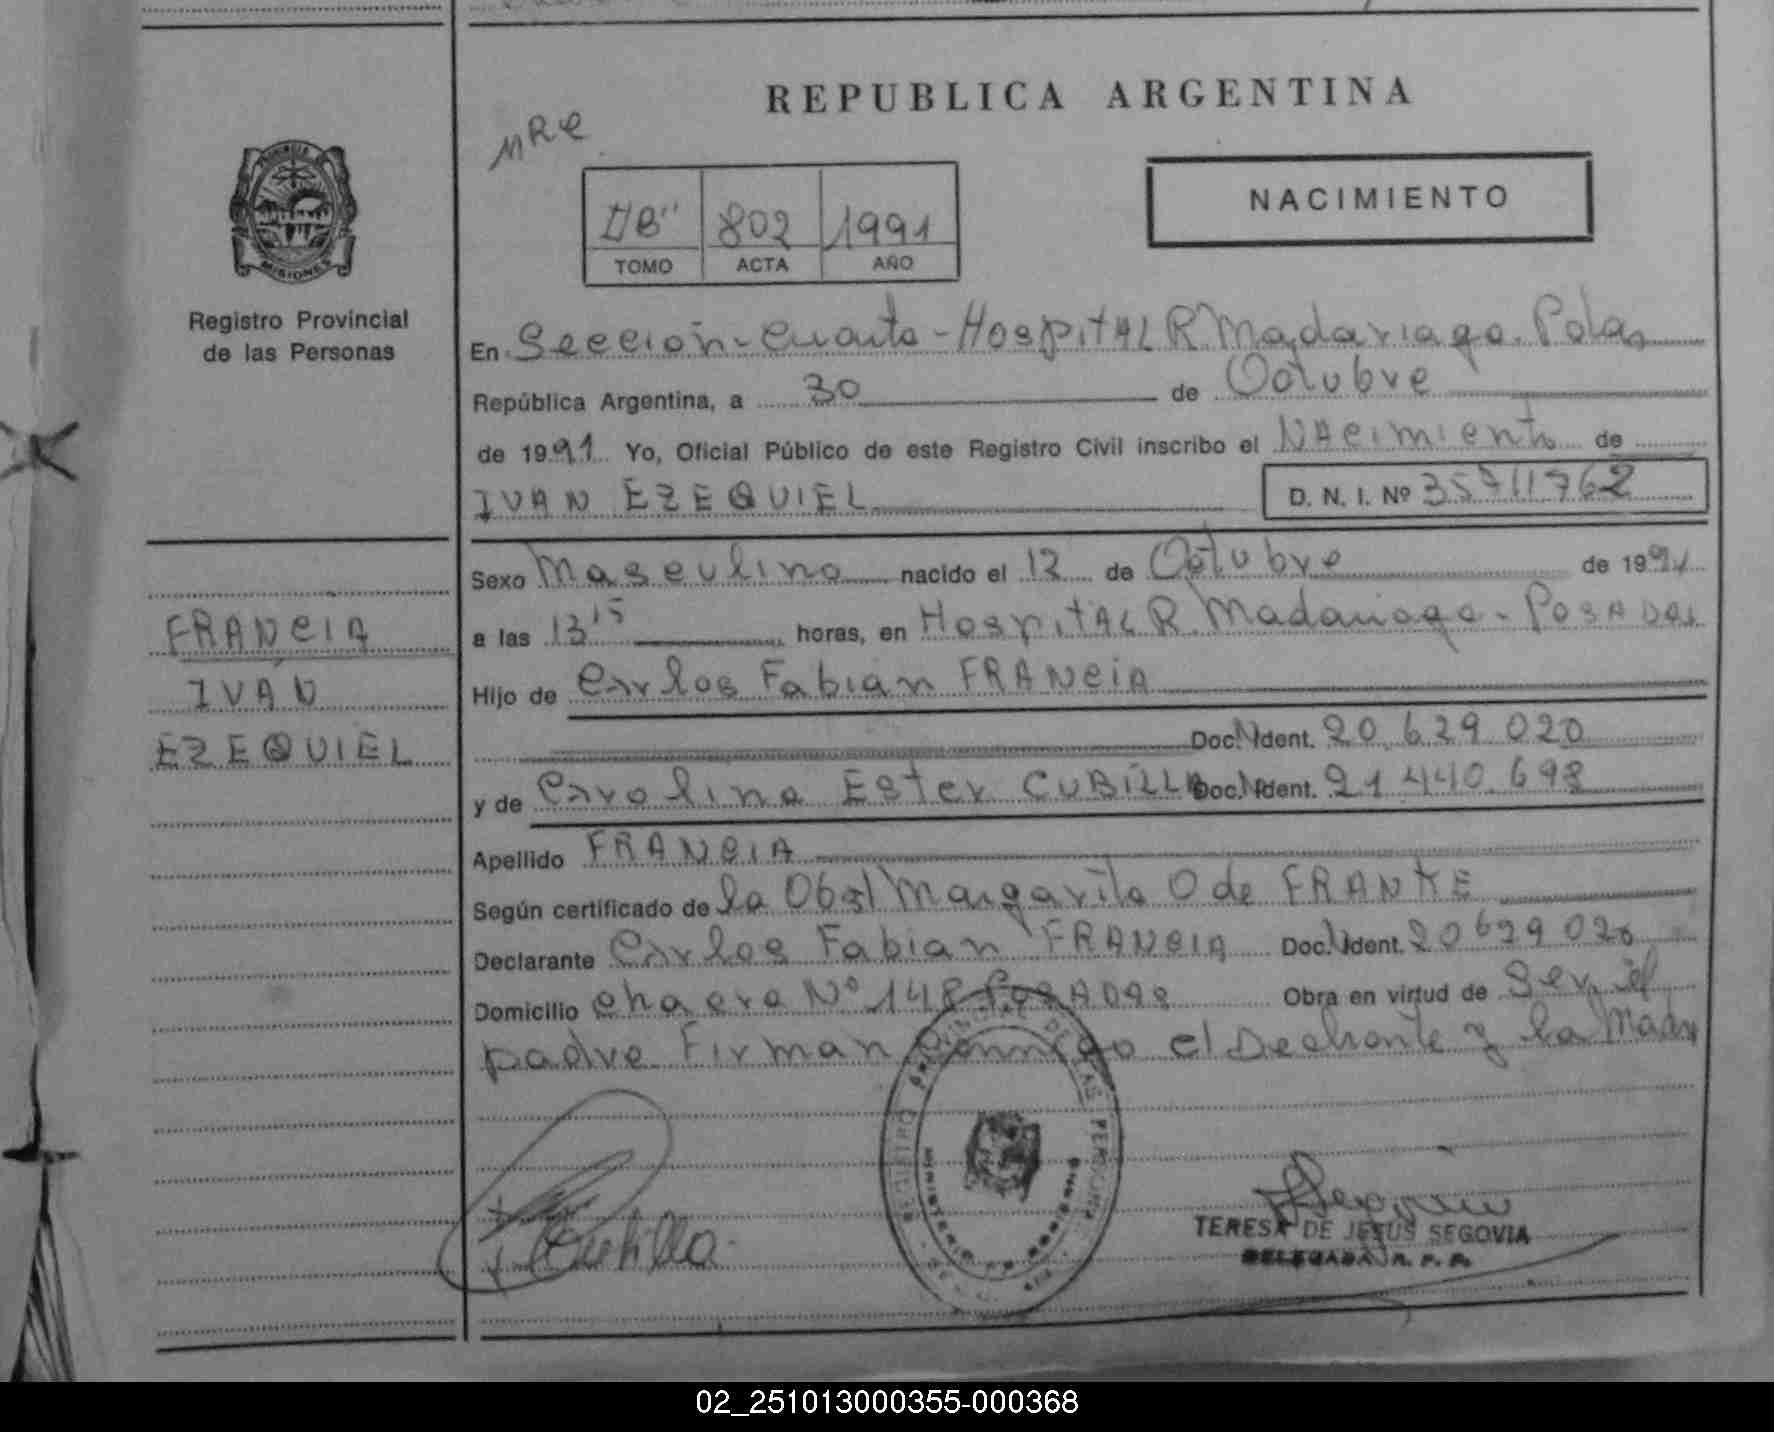 REPUBLICA ARGENTINA
NACIMIENTO
"B" 802 1991
TOMO ACTA AÑO
PROVINCIA DE
MISIONES
Registro Provincial
de las Personas
En Seccion-Cuarta-HospitAL R. Madariaga. Pdas
República Argentina, a 30 de Octubre
de 1991 Yo, Oficial Público de este Registro Civil inscribo el NAcimiento de
IVAN EZEQUIEL D. N. I. Nº 35711762
Sexo Masculino nacido el 12 de Octubre de 1991
a las 13 15 horas, en HospitAL R. Madariaga - POSADAS
FRANCIA
IVÁN
EZEQUIEL
Hijo de Carlos Fabian FRANCIA
Doc. N Ident. 20.629.020
y de Carolina Ester CUBILLA Doc. N Ident. 21.440.698
Apellido FRANCIA
Según certificado de la Obst Margarita O de FRANKE
Declarante Carlos Fabian FRANCIA Doc. N Ident. 20629020
Domicilio chacra Nº 148 POSADAS Obra en virtud de Ser el
padre Firman conmigo el Declarante y la Madre
REGISTRO PROVINCIAL DE LAS PERSONAS
MINISTERIO DE GOBIERNO
Cubilla
TERESA DE JESUS SEGOVIA
DELEGADA R. P. P.
02_251013000355-000368